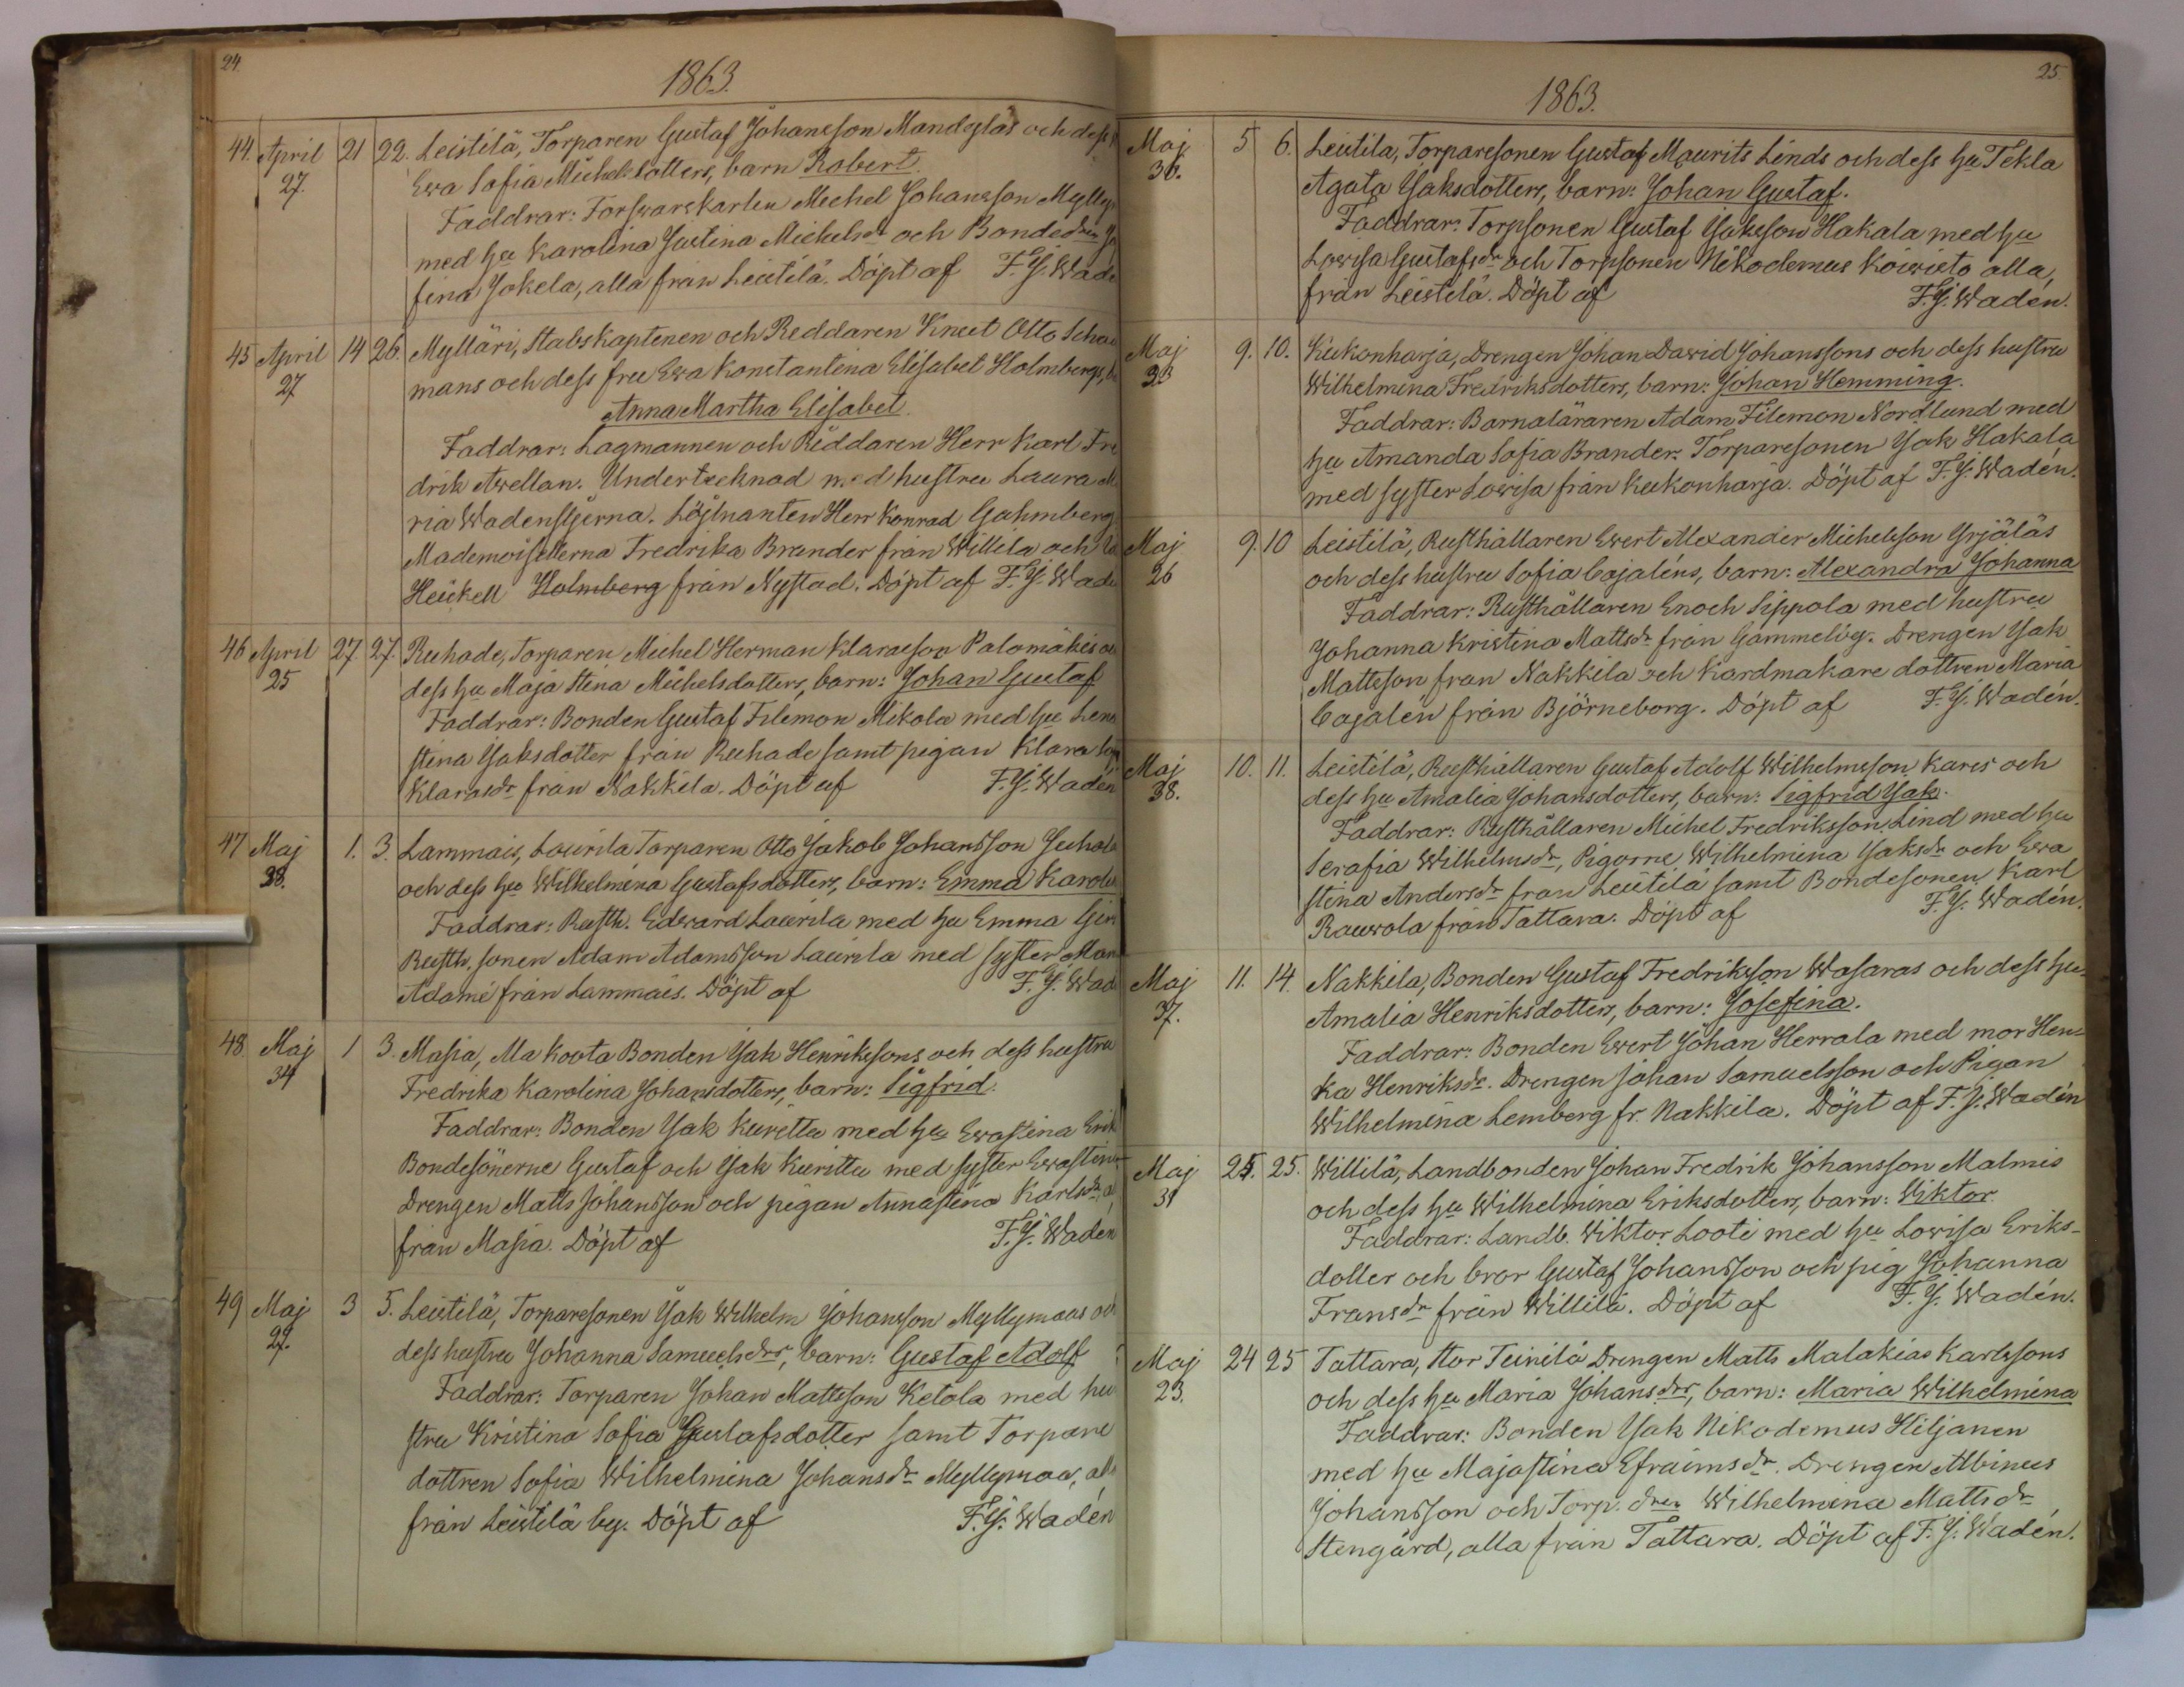 24.
1863.
44. April 21 22. Leistilä, Torparen Gustaf Johansson Mandglas och dess
27. Ewa Sofia Michelsdotters, barn Robert.
Faddrar: Forswarskarlen Michel Johansson
med hu Karolina Justina Michelsdr och Bondedren
fina Jokela, alla från Leistilä. Döpt af F. J. Wadé
45 April 14 26. Mylläri, Stabskaptenen och Reddaren Knut Otto Schau
27 mans och dess fru Ewa Konstantina Elisabet Holmbergs,
Anna Martha Elisabet.
Faddrar: Lagmannen och Riddaren Herr Karl Fre
drik Awellan. Undertecknad med hustru Laura Ma
ria Wadenstjerna. Löjtnanten Herr Konrad Gahmberg
Mademoisellerna Fredrika Brander från Willila och
Heickell Holmberg från Nystad. Döpt af F. J. Wadé
46 April 27. 27. Ruhade, Torparen Michel Herman Klarasson Palomäkis
25 dess hu Maja Stina Michelsdotters, barn: Johan Gustaf
Faddrar: Bonden Gustaf Filemon Mikola med hu Lena
stina Jaksdotter från Ruhade samt pigan Klara
Klarasdr från Nakkila. Döpt af F. J. Wadén
47 Maj 1. 3. Lammais, Laurila Torparen Otto Jakob Johansson Juhola
38. och dess hu Wilhelmina Gustafsdotters, barn: Emma Karolin
Faddrar: Rusth. Edward Laurila med hu Emma
Rusth. sonen Adam Adamsson Laurila med syster
Adamé från Lammais. Döpt af F. J. Wadé
48 Maj 1 3. Masia, Ma Koota Bonden Jak Henrikssons och dess hustru
34 Fredrika Karolina Johansdotters, barn: Sigfrid.
Faddrar: Bonden Jak Kuritta med hu Ewastina Erik
Bondesönerne Gustaf och Jak Kuritta med syster Ewastina
Drengen Matts Johansson och pigan Annastina Karlsdr,
från Masia. Döpt af F. J. Wadén
49 Maj 3 5. Leistilä, Torparesonen Jak Wilhelm Johansson Myllymaas och
29. dess hustru Johanna Samuelsdrs, barn: Gustaf Adolf
Faddrar: Torparen Johan Mattsson Ketola med hu
stru Kristina Sofia Gustafsdotter samt Torpare
dottren Sofia Wilhelmina Johansdr Myllymaa, alla
från Leistilä by. Döpt af F. J. Wadén
25.
1863.
Maj 5 6. Leistila, Torparesonen Gustaf Maurits Linds och dess hu Tekla
36. Agata Jaksdotters, barn: Johan Gustaf.
Faddrar: Torpsonen Gustaf Jaksson Hakala med hu
Lowisa Gustafsdr och Torpsonen Nikodemus Koiwisto alla,
från Leistilä. Döpt af F. J. Wadén.
Maj 9. 10. Kukonharja, Drengen Johan Dawid Johanssons och dess hustru
33 Wilhelmina Fredriksdotters, barn: Johan Hemming.
Faddrar: Barnaläraren Adam Filemon Nordlund med
hu Amanda Sofia Brander. Torparesonen Jak Hakala
med syster Lowisa från Kukonharja. Döpt af F. J. Wadén.
Maj 9. 10 Leistilä, Rusthållaren Ewert Alexander Michelsson Yrjäläs
26 och dess hustru Sofia Cajaléns, barn: Alexandra Johanna
Faddrar: Rusthållaren Enoch Sippola med hustru
Johanna Kristina Mattsdr från Gammelby. Drengen Jak
Mattsson från Nakkila och Kardmakare dottren Maria
Cajalén från Björneborg. Döpt af F. J. Wadén.
Maj 10. 11. Leistilä, Rusthållaren Gustaf Adolf Wilhelmsson Kares och
38. dess hu Amalia Johansdotters, barn: Sigfrid Jak.
Faddrar: Rusthållaren Michel Fredriksson Lind med hu
Serafia Wilhelmsdr, Pigorne Wilhelmina Jaksdr och Ewa
stina Andersdr från Leistilä samt Bondesonen Karl
Rauwola från Tattara. Döpt af F. J. Wadén.
Maj 11. 14. Nakkila, Bonden Gustaf Fredriksson Wasaras och dess hu
37. Amalia Henriksdotters, barn: Josefina.
Faddrar: Bonden Ewert Johan Herrala med mor Hen-
ka Henriksdr. Drengen Johan Samuelsson och Pigan
Wilhelmina Lemberg fr. Nakkila. Döpt af F. J. Wadén
Maj 25. 25. Willilä, Landbonden Johan Fredrik Johansson Malmis
31 och dess hu Wilhelmina Eriksdotters, barn: Wiktor.
Faddrar: Landb. Wiktor Looti med hu Lowisa Eriks-
dotter och bror Gustaf Johansson och pig Johanna
Fransdr från Willilä. Döpt af F. J. Wadén.
Maj 24 25 Tattara, Stor Teinilä Drengen Matts Malakias Karlssons
23. och dess hu Maria Johansdrs, barn: Maria Wilhelmina
Faddrar: Bonden Jak Nikodemus Hiljanen
med hu Majastina Efraimsdr. Drengen Albinus
Johansson och Torp. dren Wilhelmina Mattsdr
Stengård, alla från Tattara. Döpt af F. J. Wadén.